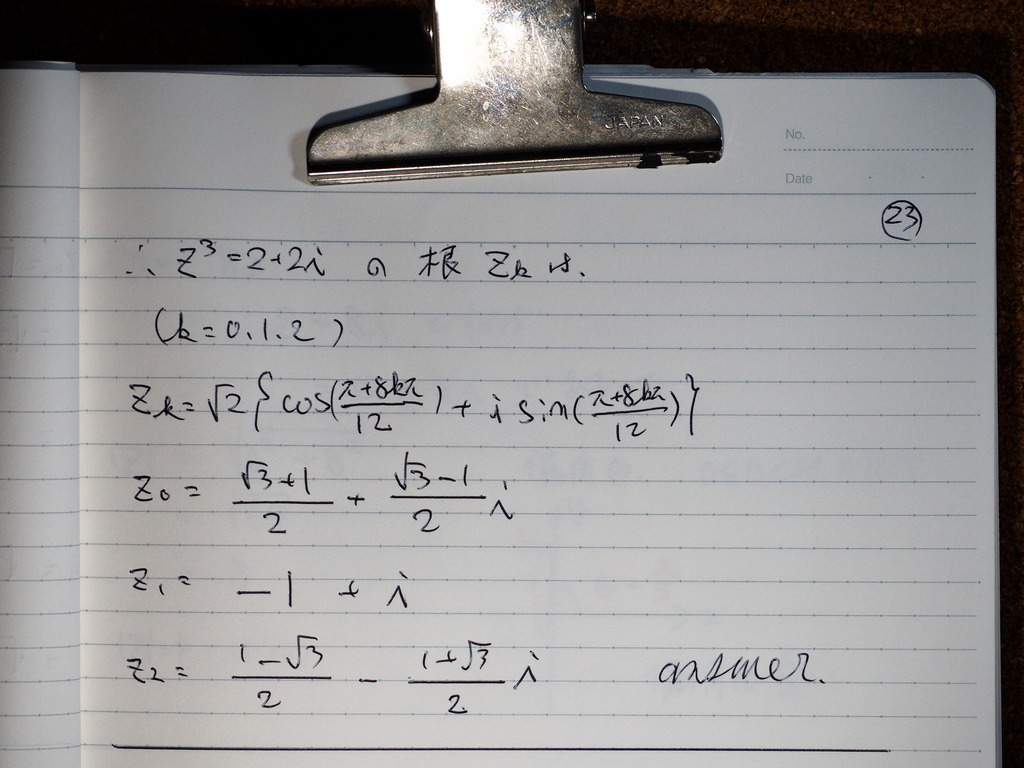 JAPAN
No.
Date
23
∴ z³=2+2i の 根 Zk は.
(k=0.1.2)
Zk=√2{cos((π+8kπ)/12)+i sin((π+8kπ)/12)}
Z0=(√3+1)/2+(√3-1)/2 i
Z1=-1+i
Z2=(1-√3)/2-(1+√3)/2 i answer.